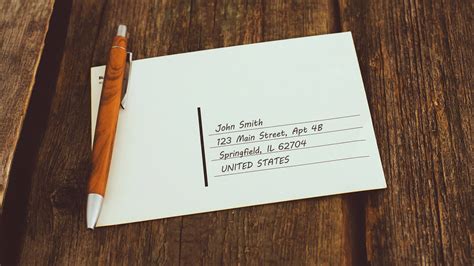 John Smith
123 Main Street, Apt 4B
Springfield, IL 62704
UNITED STATES